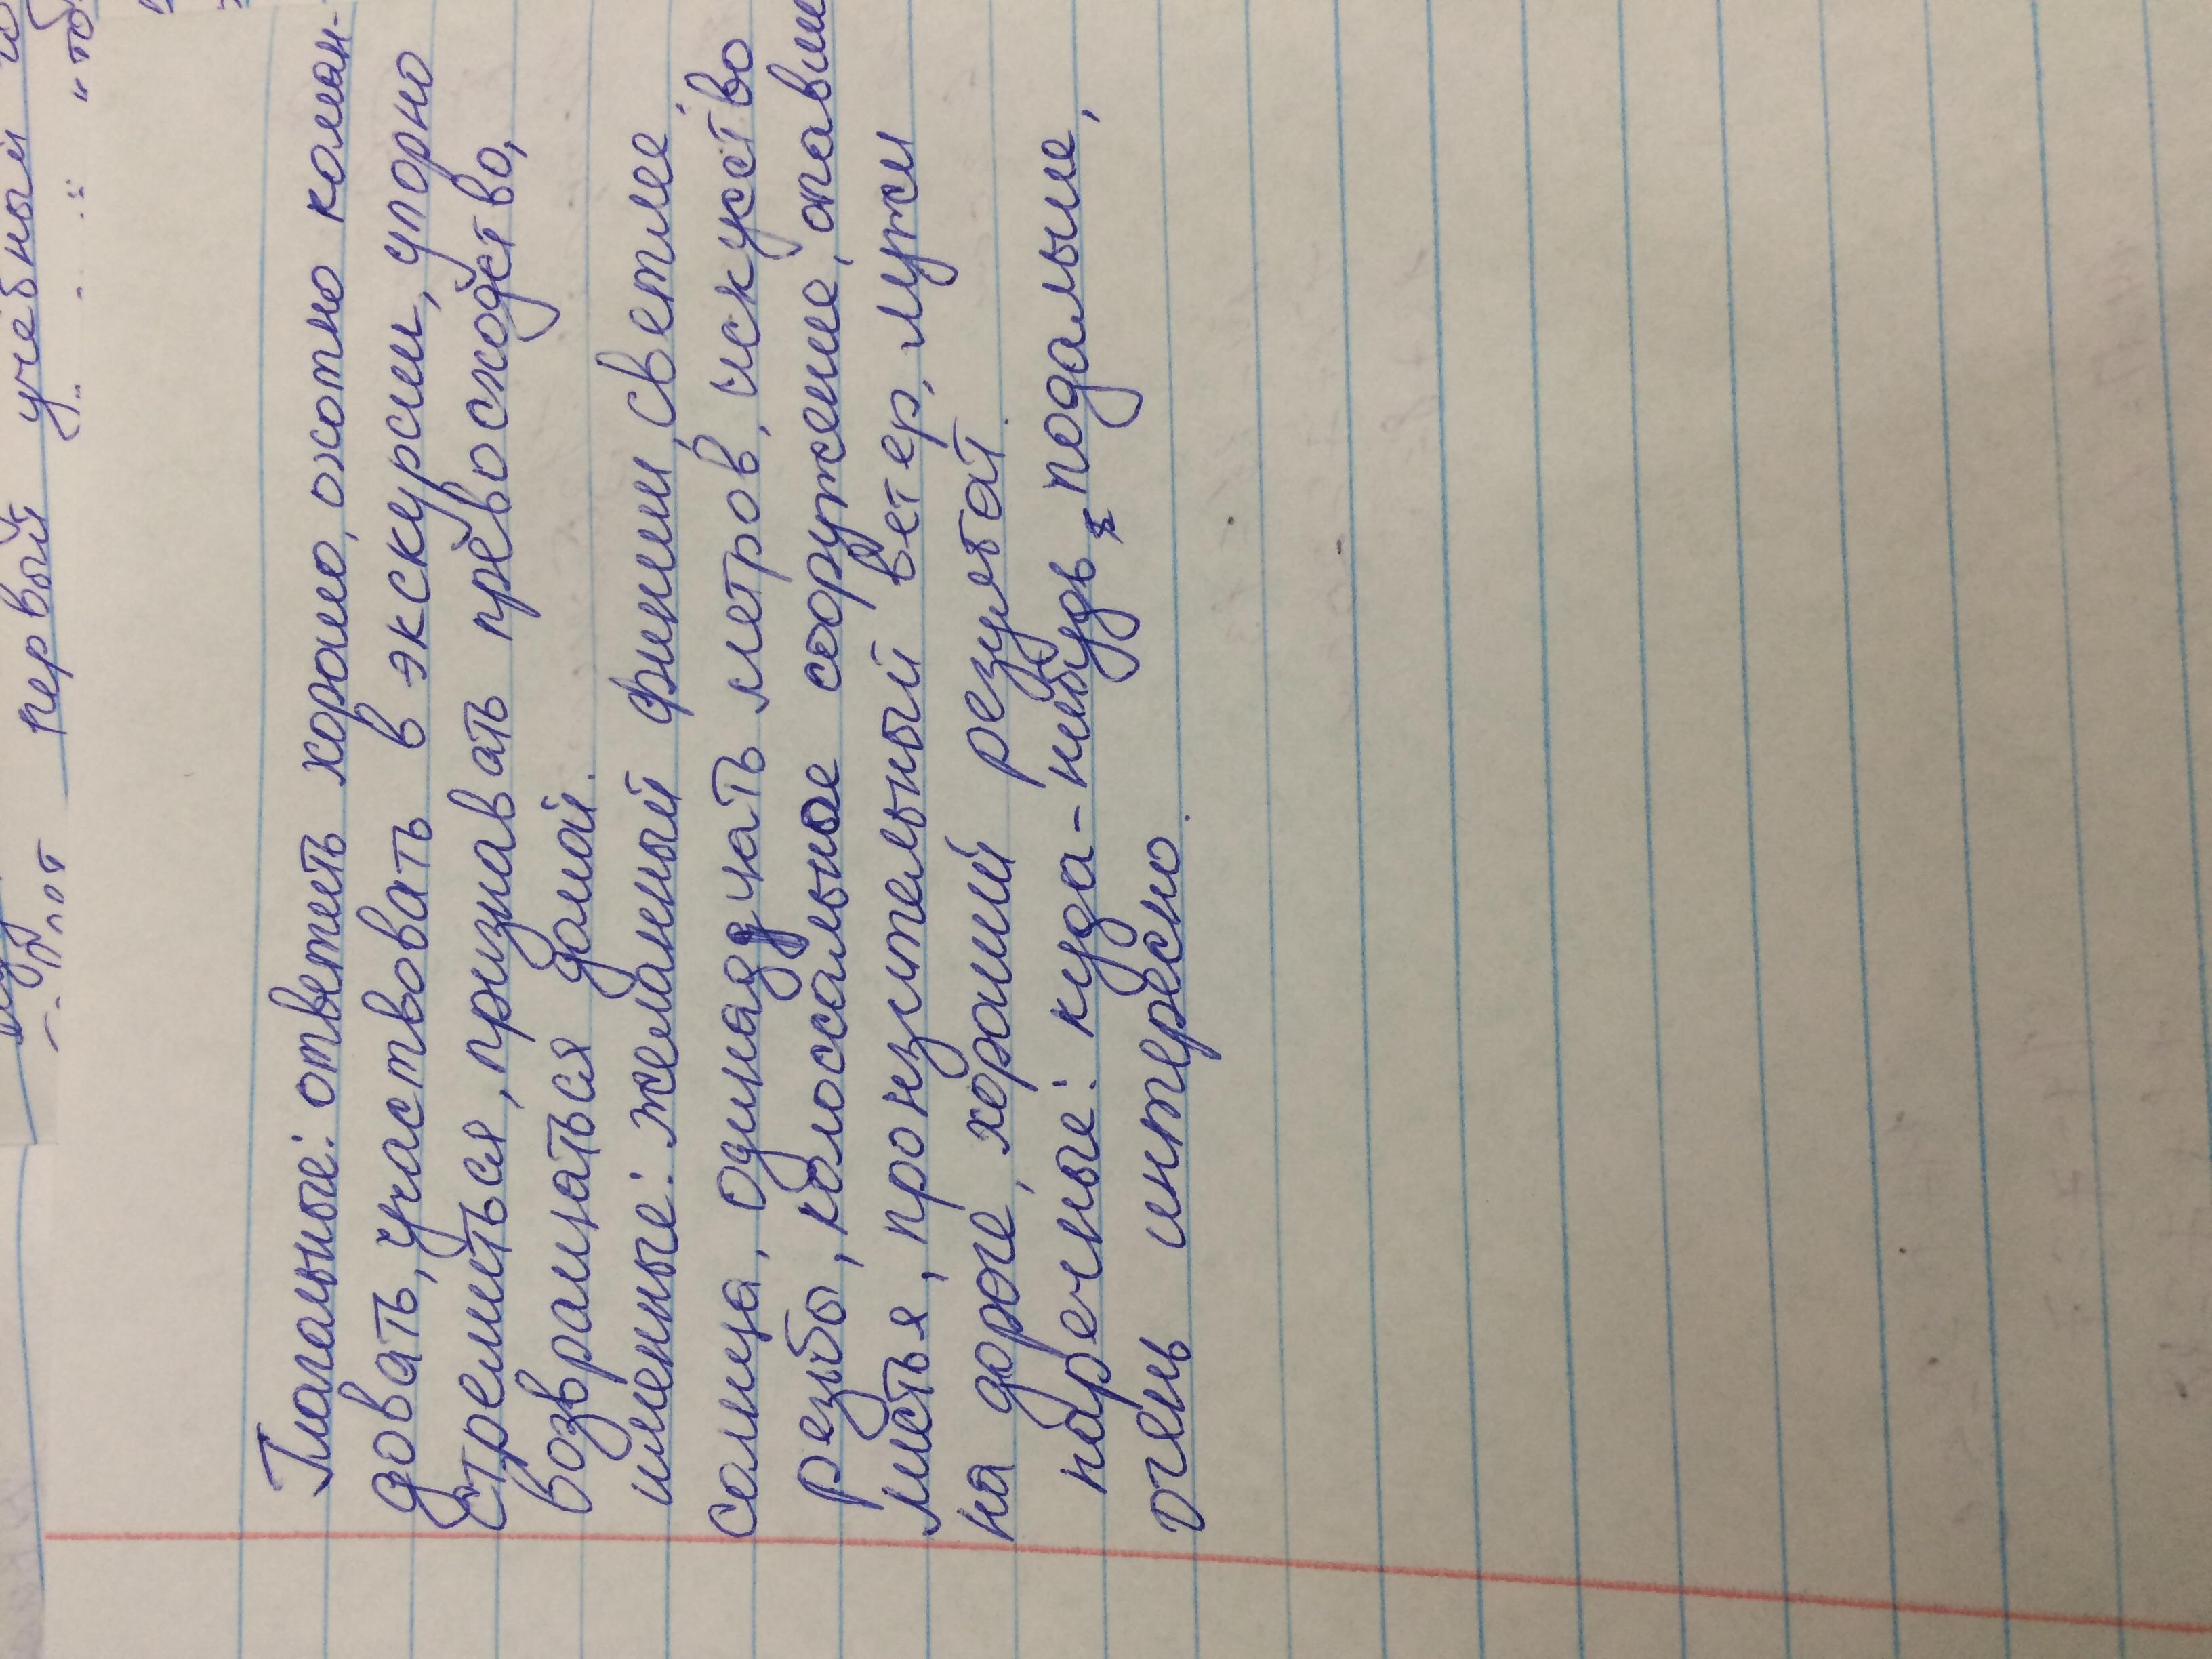 учебный
первый
Глагольные: ответить хорошо, охотно коман-
довать, участвовать в экскурсии, упорно
стремиться, признавать превосходство,
возвращаться домой.
именные: желанный финиш, светлее
солнца, одинадцать метров, искуство
резьбы, колоссальное сооружение, опавшие
листья, пронзительный ветер, лужи
на дороге, хороший результат.
наречные: куда-нибудь подальше,
очень интересно.